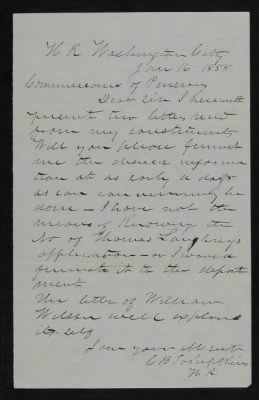 H R Washington City
Jan 16 1888
Commissioner of Pensions
Dear Sir I herewith
present two letters rec'd
from my constituents
Will you please furnish
me the desired informa
tion at as early a day
as can conveniently be
done – I have not the
means of knowing the
No of Thomas Laughreys
application – or I would
furnish it to the depart
ment
The letter of William
Wilson will explain
its self
I am yours
H R